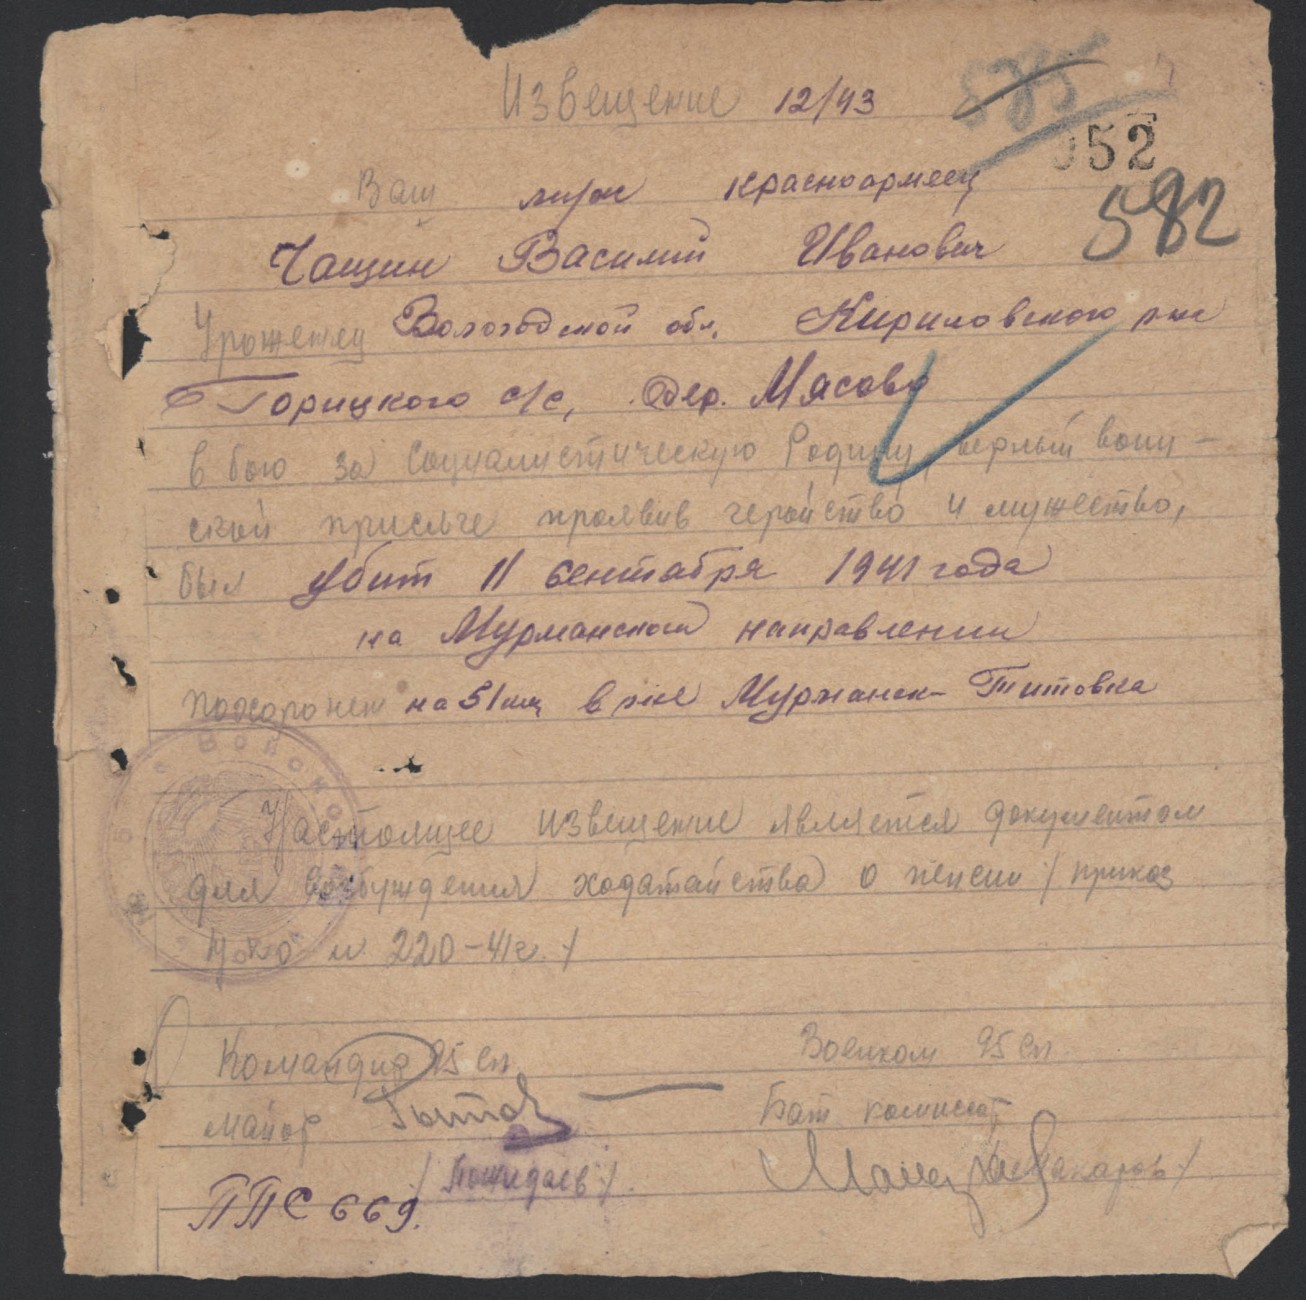 Извещение 12/43
575
52
582
Ваш муж красноармеец
Чащин Василий Иванович
Уроженец Вологодской обл. Кириловского р-на
Горицкого с/с, дер. Мясово
в бою за Социалистическую Родину, верный воин-
ской присяге проявив геройство и мужество,
был убит 11 сентября 1941 года
на Мурманском направлении
похоронен на 51 км, в р-не Мурманск-Титовка
Настоящее извещение является документом
для возбуждения ходатайства о пенсии /приказ
НКО № 220-41г./
Командир 95 сп Военком 95 сп
майор Бат комиссар
/Пожидаев/ Макаров/
ППС 669.